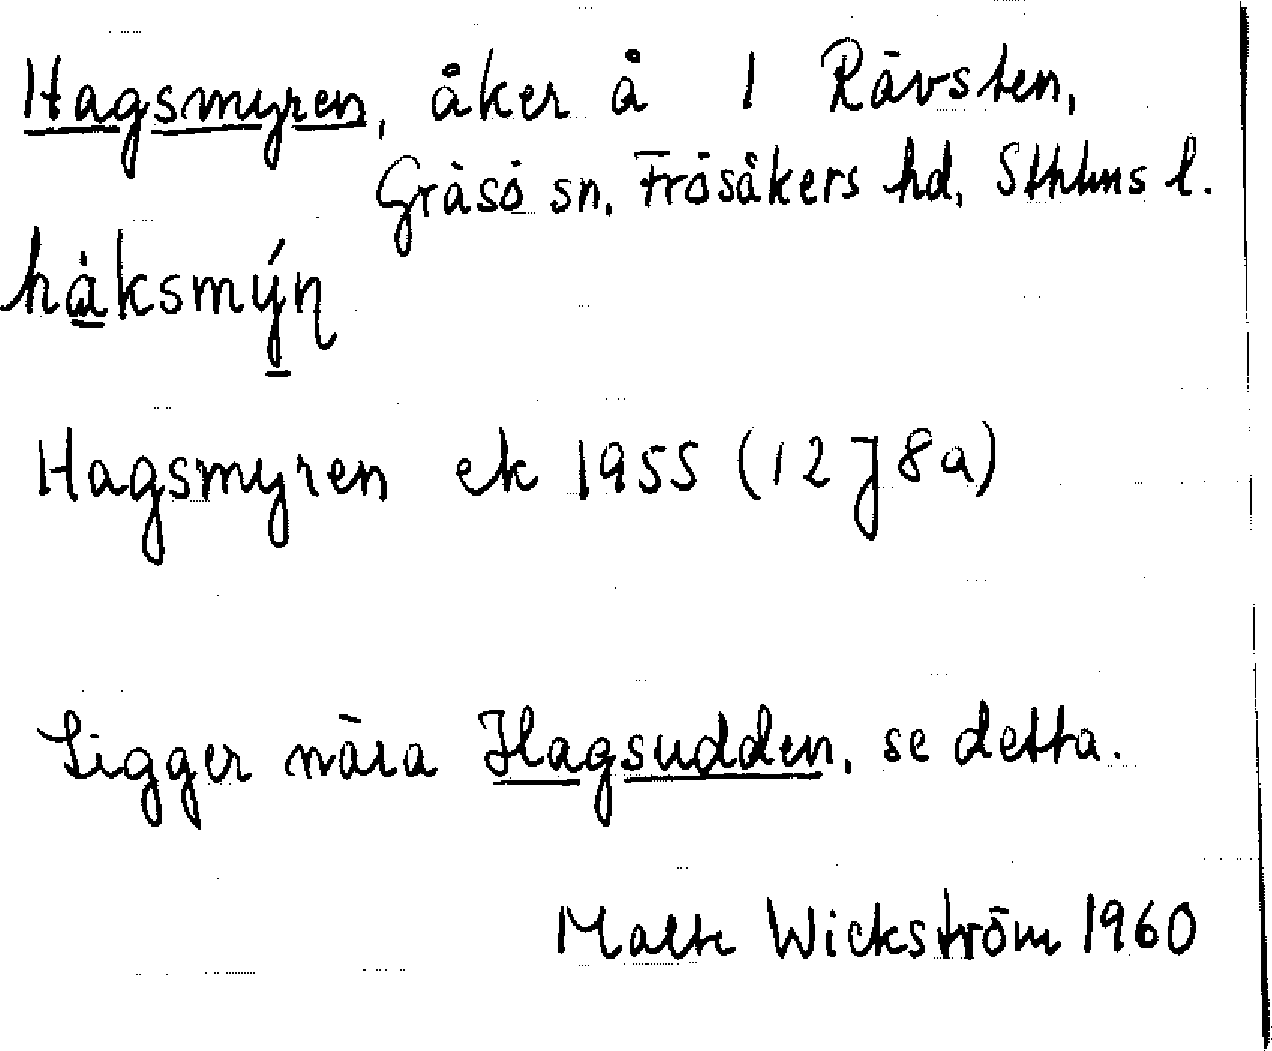 Hagsmyren, åker å 1 Rävsten,
Gräsö sn, Frösåkers hd, Sthlms l.
hàksmýn
Hagsmyren ek 1955 (12 J 8a)
Ligger nära Hagsudden, se detta.
Malte Wickström 1960